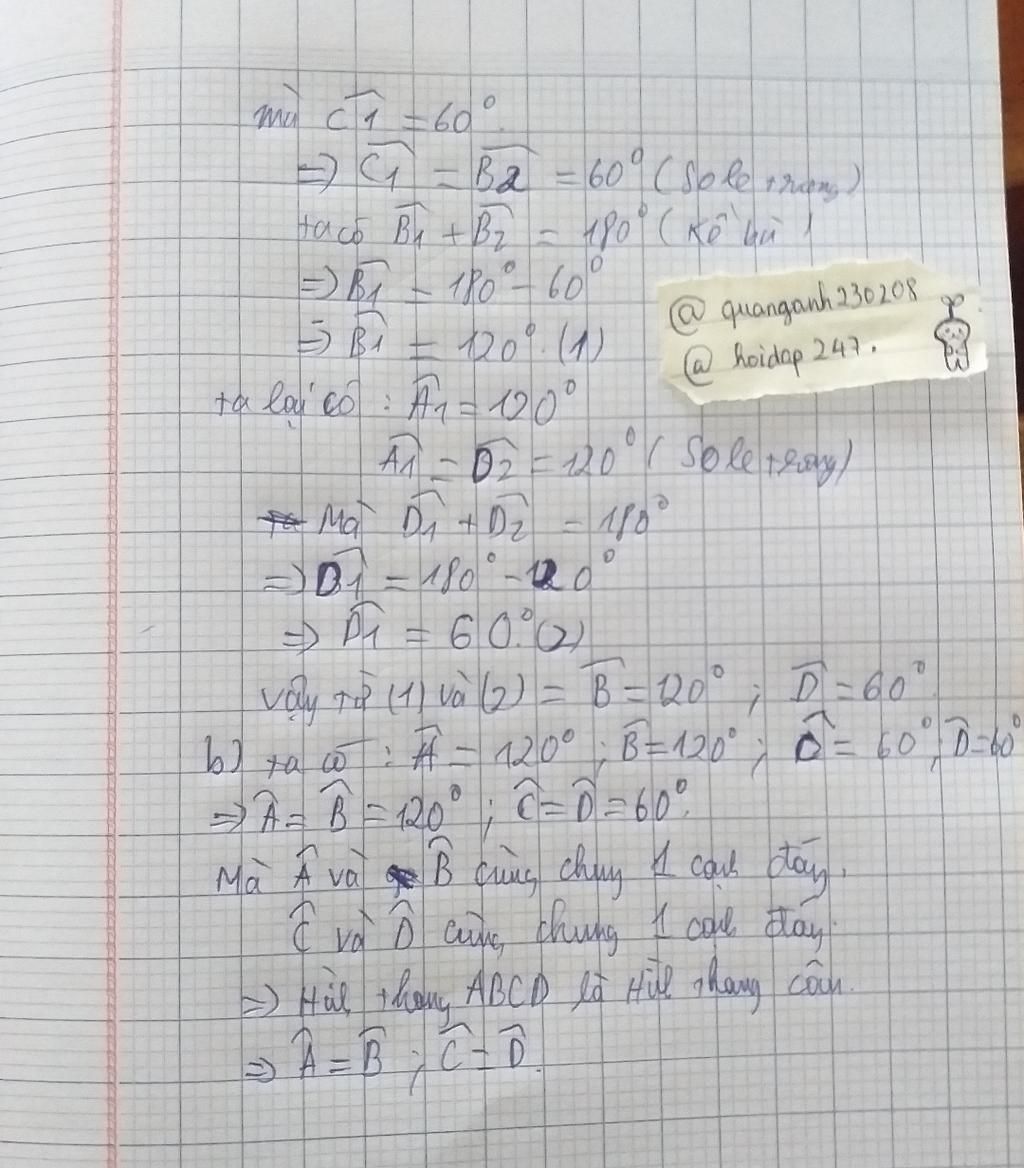 mà Ĉ1 = 60°.
⇒ Ĉ1 = B̂2 = 60° (Sole trong)
ta có B̂1 + B̂2 = 180° (Kề bù)
⇒ B̂1 = 180° - 60°
⇒ B̂1 = 120°. (1)
@ quanganh230208
@ hoidap 247.
ta lại có : Â1 = 120°
Â1 = D̂2 = 120° (Sole trong)
Mà D̂1 + D̂2 = 180°
⇒ D̂1 = 180° - 120°
⇒ D̂1 = 60.° (2)
vậy từ (1) và (2) = B̂ = 120° ; D̂ = 60°
b) ta có : Â = 120° ; B̂ = 120° ; Ĉ = 60° ; D̂ = 60°
⇒ Â = B̂ = 120° ; Ĉ = D̂ = 60°.
Mà Â và B̂ cùng chung 1 cạnh đáy.
Ĉ và D̂ cùng chung 1 cạnh đáy.
⇒ Hình thang ABCD là Hình thang cân.
⇒ Â = B̂ ; Ĉ = D̂.